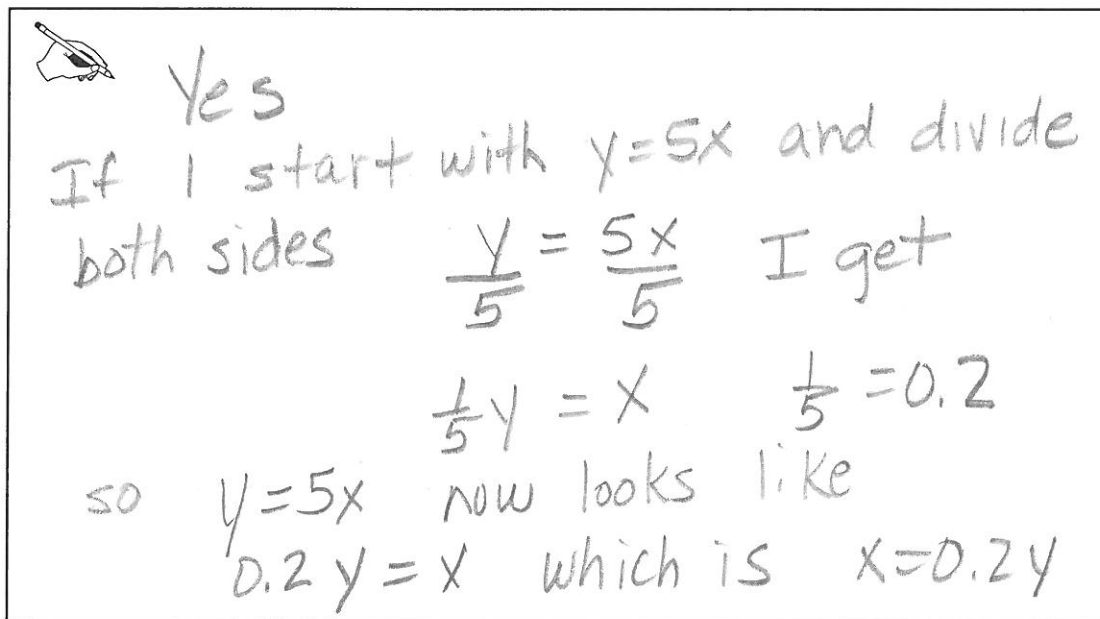 Yes
If I start with y=5x and divide
both sides y/5 = 5x/5 I get
1/5 y = x 1/5 = 0.2
so y=5x now looks like
0.2y=x which is x=0.2y